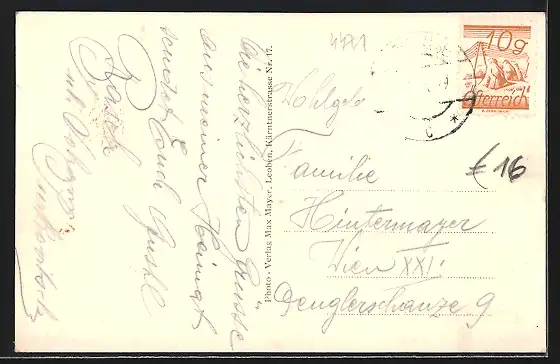 Die herzlichsten Grüsse
aus meiner Heimat
sendet Euch Gustl
Photo - Verlag Max Mayer, Leoben, Kärntnerstrasse Nr. 17.
4441
10g
Österreich
Wohlgeb.
Familie
Hintermayer
Wien XXI.
Denglerschanze 9
€ 16